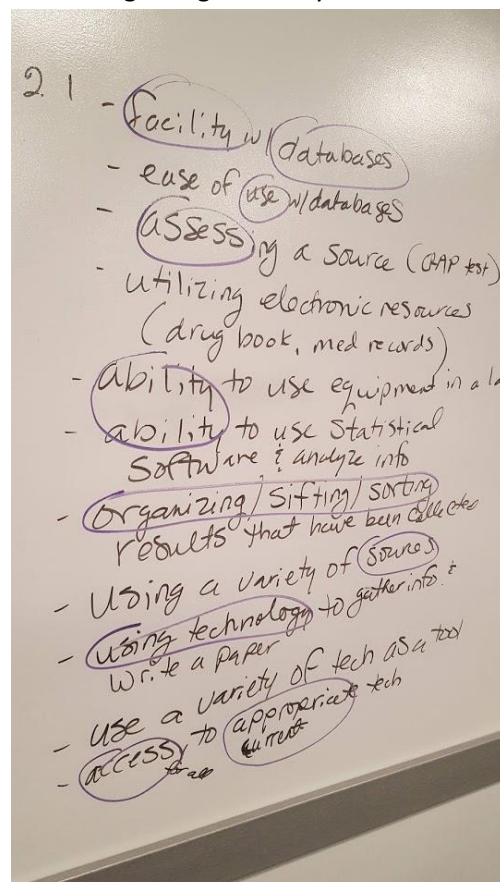 2.1
- facility w/ databases
- ease of use w/databases
- assessing a source (CRAP test)
- utilizing electronic resources
(drug book, med records)
- ability to use equipment in a la
- ability to use Statistical
Software & analyze info
- organizing/sifting/sorting
results that have been collected
- Using a variety of sources
- using technology to gather info &
write a paper
- use a variety of tech as a tool
- access to appropriate tech
for all current